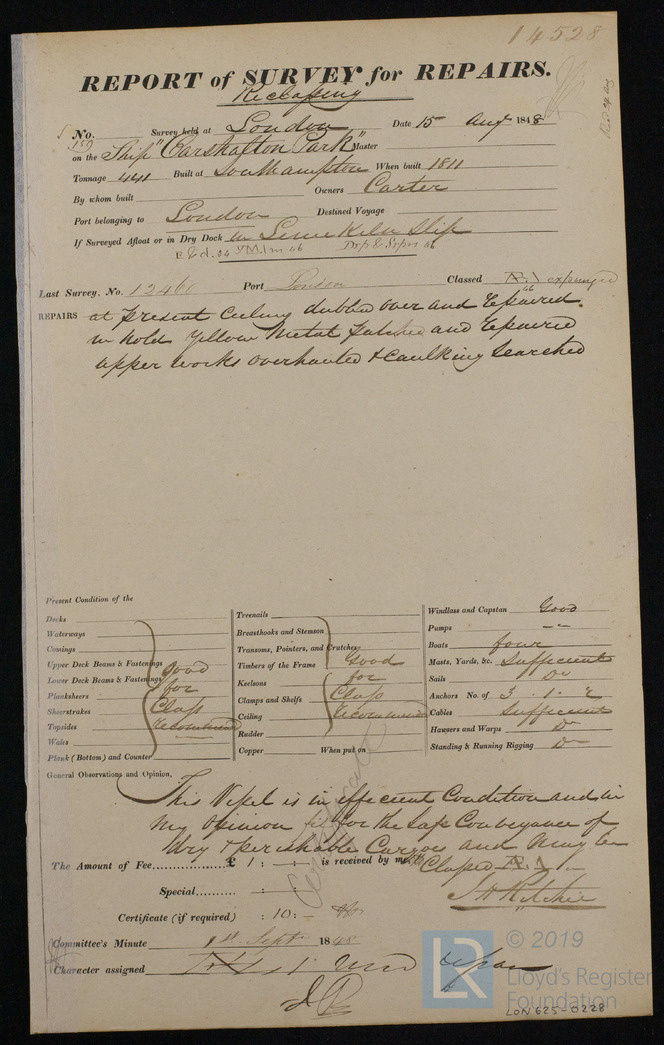 14528
REPORT of SURVEY for REPAIRS.
Reclassing
No. 159 Survey held at London Date 15 Augt 1848
on the Ship "Carshalton Park" Master
Tonnage 441 Built at Southampton When built 1811
By whom built Owners Carter
Port belonging to London Destined Voyage
If Surveyed Afloat or in Dry Dock in Lime Kiln Slip
Last Survey, No. 12460 Port London Classed Æ.1 expunged
REPAIRS at present Ceiling dubbed over and Repaired
in hold Yellow Metal patched and Repaired
upper works overhauled & Caulking Searched
Present Condition of the
Decks
Waterways
Comings
Upper Deck Beams & Fastenings good
Lower Deck Beams & Fastenings for
Planksheers Class
Sheerstrakes
Topsides recommend
Wales
Plank (Bottom) and Counter
Treenails
Breasthooks and Stemson
Transoms, Pointers, and Crutches
Timbers of the Frame Good
Keelsons for
Clamps and Shelfs Class
Ceiling recommend
Rudder
Copper When put on
Windlass and Capstan Good
Pumps --
Boats four
Masts, Yards, &c. Sufficient
Sails Do
Anchors No. of 3 . 1 . 2
Cables Sufficient
Hawsers and Warps Do
Standing & Running Rigging Do
General Observations and Opinion,
This Vessel is in efficient Condition and in
my Opinion fit for the Safe Conveyance of
Dry & perishable Cargoes and may be
Classed Æ.1
The Amount of Fee £ 1 : - : - is received by me,
Special : :
J H Ritchie
Certificate (if required) : 10 : -
Committee's Minute 1st Septr 1848
Character assigned
© 2019
LR
Lloyd's Register
Foundation
LON625-0228